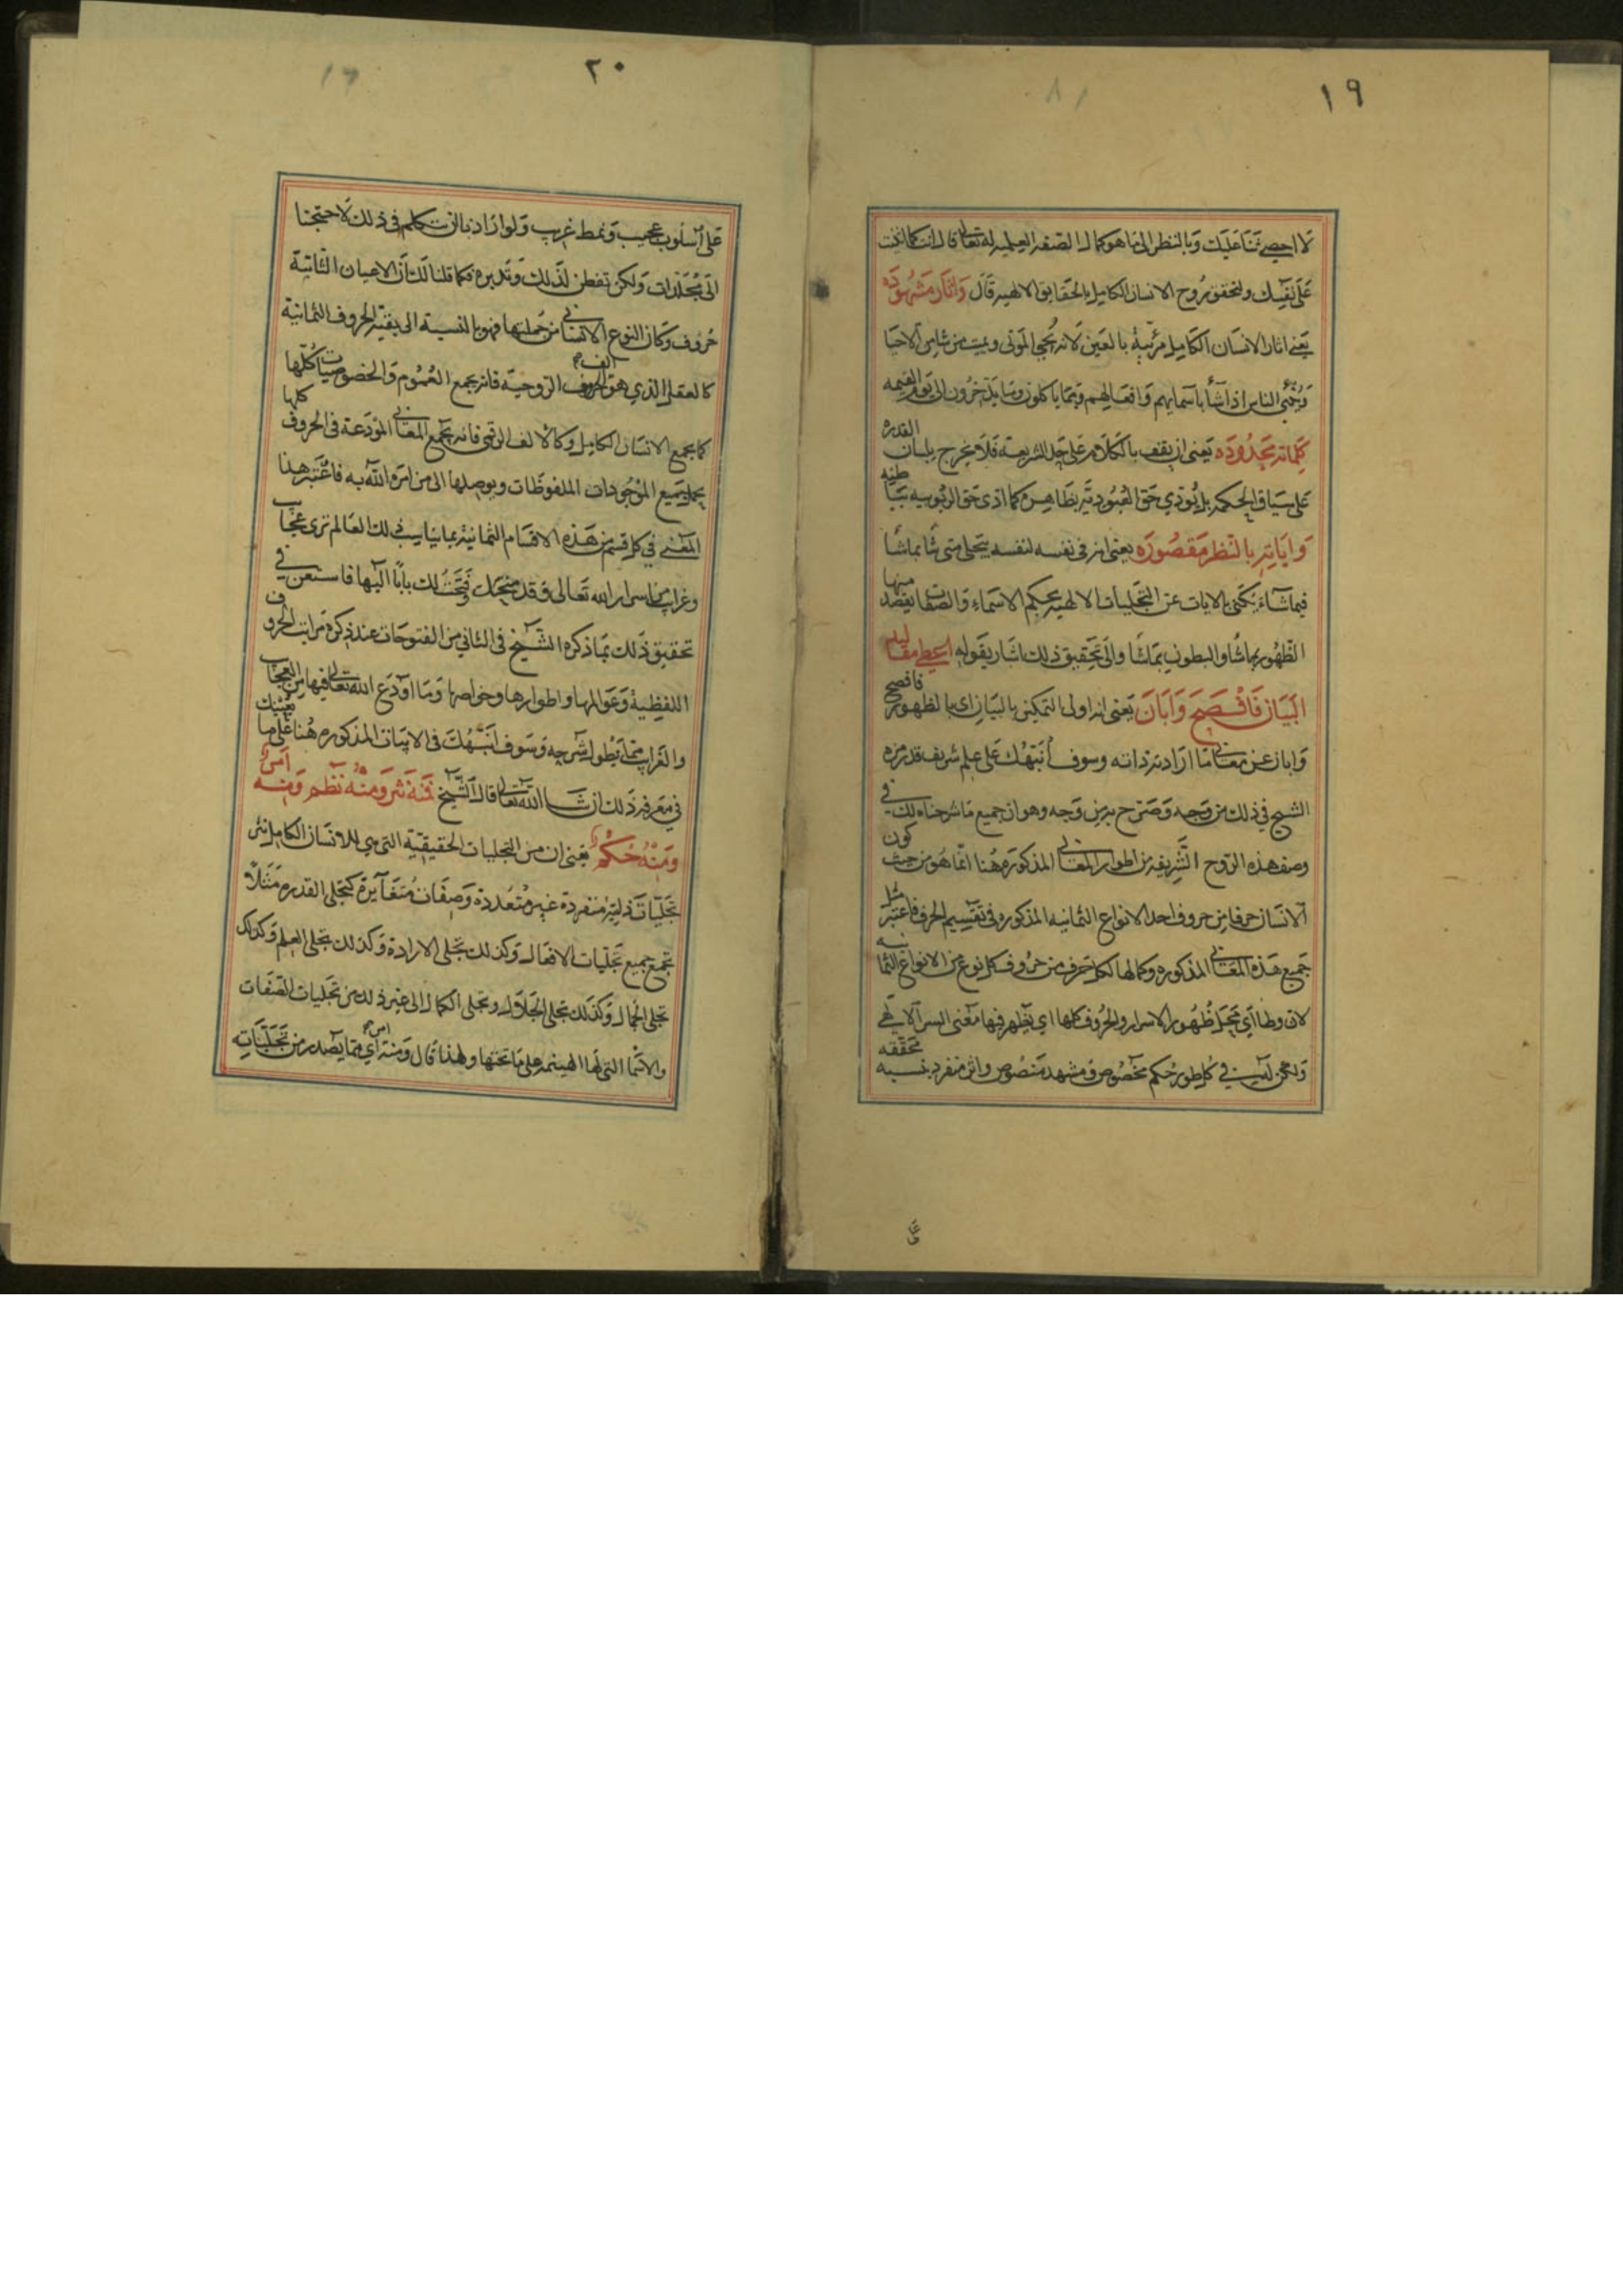 ١٩
لا احصى ثنا عليك وبالنظر الى ما هو كمال الصفه العلميه له تعالى قال انت كما اثنيت
على نفسك ولتحقق روح الانسان الكامل بالحقايق الالهيه قال وَاثاره مَشهُودَه
يَعنى اثار الانسان الكامل مرئية بالعين لانه يُحيي الموتى ويميت من شا من الاحيا
ويُنبّي الناس اذا شأ باسمايهم وافعالهم وبما ياكلون وما يدّخرون الى يوم القيمه
كلماته محدُودَه يَعنى ان يقف بالكلام على حد الشريعة فلا يخرج بلسان القدره
على سياق الحكمه بل يُودي حق العبُوديّه بظاهره كما ادى حق الربُوبيه بباطنه
وَايَاته بالنظر مَقصُورَه يعنى انه فى نفسه لنفسه يتجلى متى شا بماشأ
فيما شآء يكنى بالايات عن التجليات الالهيه بحكم الاسماء والصفات يقصد منها
الظهُور بما شا والبطون بما شا والى تحقيق ذلك اشار بقوله اعطى مقاليد
البَيَان فَافْصَحَ وَابَانَ يَعنى انه اولى التمكين بالبيان اى بالظهور فافصح
وابان عن معانى ما اراد من ذاته وسوف أُنبّهُك على علم شريف قد رمزه
الشيخ فى ذلك من وجه وَصَرّح به من وَجه وهو ان جميع ما شرحناه لك فى
وصف هذه الروح الشريفه من اطوار المعانى المذكوره هُنا انما هُو من حيث كون
الانسان حرفا من حروف احد الانواع الثمانيه المذكوره فى تقسيم الحرف فاعتبر مثل
جميع هذه المعانى المذكوره وكمالها لكل حرف من حرُوف كل نوع من الانواع الثمانيه
لان وطا اي مَجَرّ ظُهُور الاسرار والحُروف كلها اي يظهر فيها معنى السر الالهي
ولكن ليس في كُل طور حُكم مخصُوص ومشهد منصُوص واثر منفرد بنسبه تحققه
على
٢٠
على أسلُوب عجيب ونمط غريب ولو اردنا ان نتكلم فى ذلك لاحتجنا
الى مُجلدات ولكن تفطن لذلك وتدبره فكما قلنا لك ان الاعيان الثابتة
حُروف وكان النوع الانسانى من جملتها فهو بالنسبة الى بقية الحروف الثمانية
كالعقل الذي هو الف الحروف الروحية فانه يجمع العُمُوم والخصوصيات كُلّها
كما يجمع الانسان الكامل وكالالف الرقمى فانه يجمع المعانى المودَعة فى الحروف كلها
بحمله جميع الموجُودات الملفوظات ويوصلها الى من امره الله به فاعتبر هذا
المعنى في كل قسم من هَذه الاقسام الثمانية بما يناسب ذلك العالم ترى عجايب
وغرايب من اسرار الله تعالى وقد منحتك وفتحتُ لك بابًا اليها فاستعن في
تحقيق ذلك بما ذكره الشيخ فى الثاني من الفتوحات عند ذكره مراتب الحروف
اللفظية وعَوالمها واطوارها وخواصها وما اودع الله تعالى فيها من العجايب
والغرايب مما يطول شرحه وسوف أنبّهُك فى الابيات المذكوره هُنا على ما يُعينك
في معرفة ذلك ان شا الله تعالى قال الشيخ فمنه نثر ومنهُ نظم ومنه امرٌ
ومنهُ حُكمٌ يَعنى ان من التجليات الحقيقية التى هي للانسان الكامل نثر
تجليات ذاتيه منفردة غير متعددة وصفات مُتغايرة كتجلى القدره مثلًا
تجمع جميع تجليات الافعال وكذلك تجلى الارادة وكذلك تجلى العلم وكذلك
تجلى الجمال وكذلك تجلى الجلال وتجلى الكمال الى غير ذلك من تجليات الصفات
والاسما التى لها الهيمنه على ما تحتها ولهذا قال ومنه امر اي مما يصدر من تجلياته